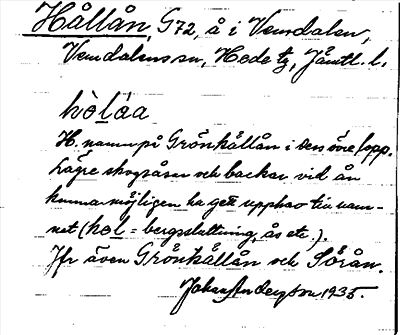 Hållån, G72, å i Vemdalen,
Vemdalens sn, Hede tg, Jämtl. l.
hòlóa
H. namn på Grönkållån i dess övre lopp.
Lägre skogsåsar och backar vid ån
kunna möjligen ha gett upphov till nam-
net (hol = bergsluttning, ås etc.).
Jfr även Grönkållån och Sörån.
Johan Andersson 1935.